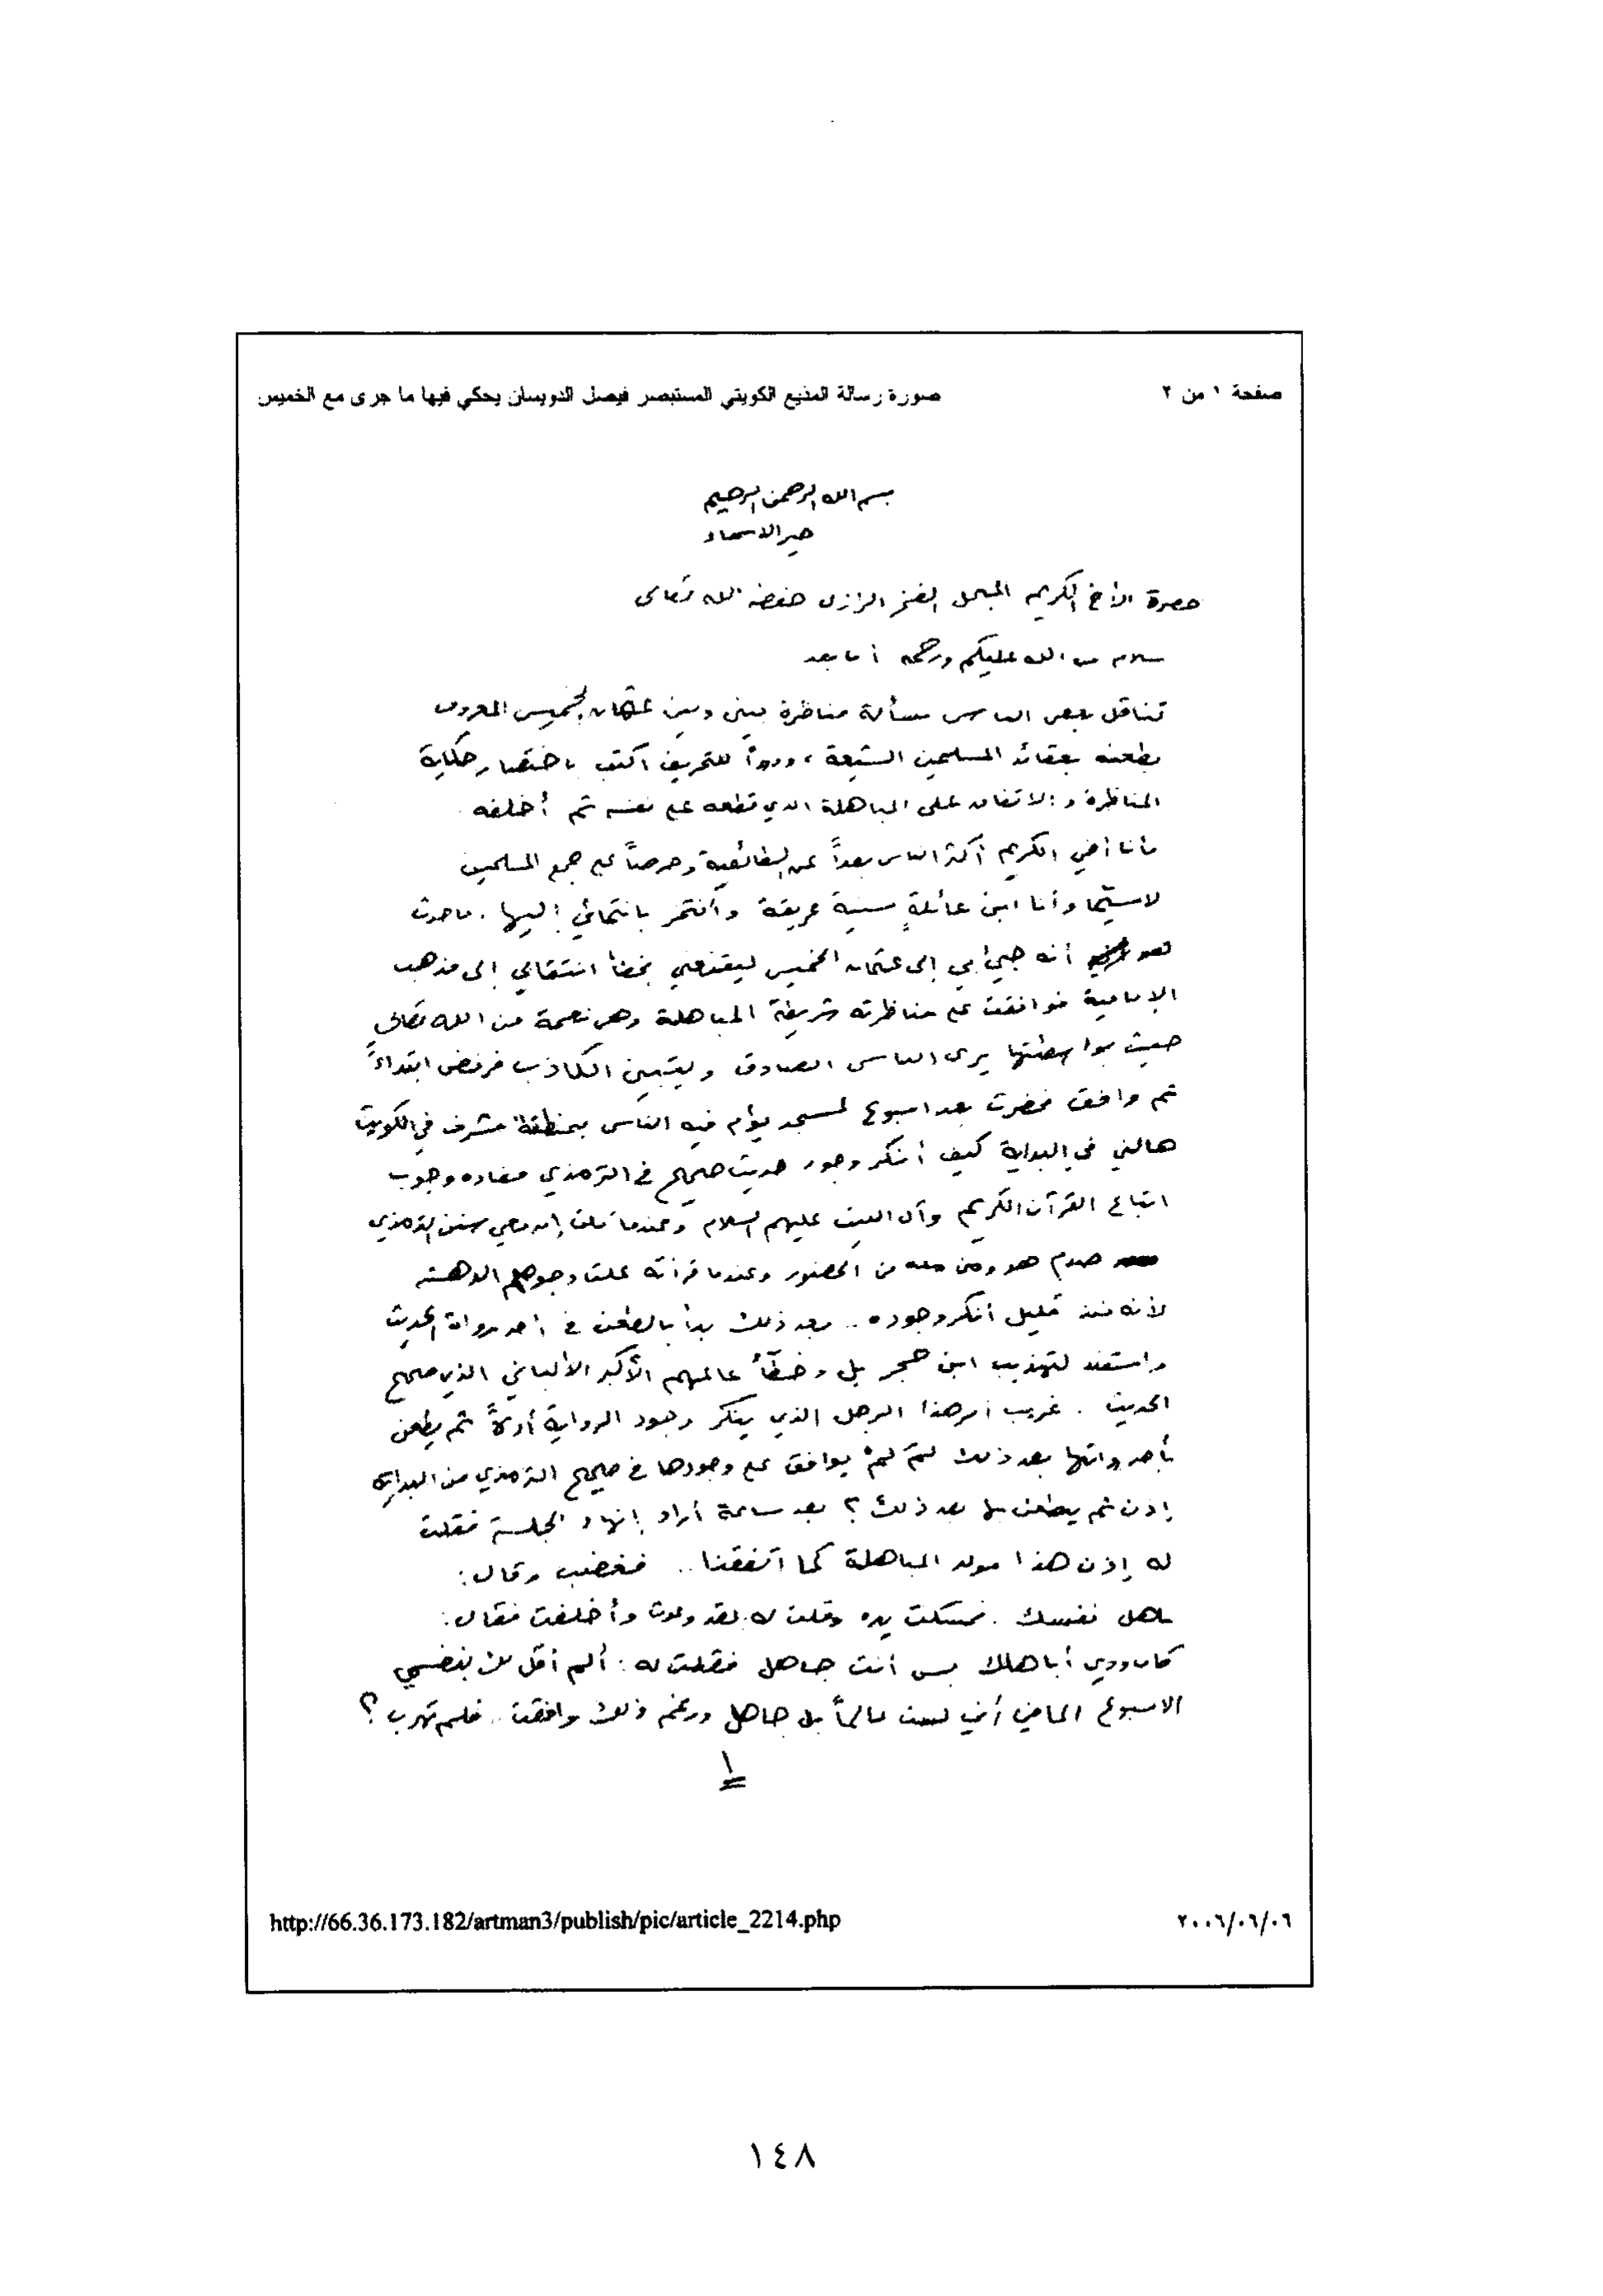 صفحة ١ من ٢
صورة رسالة المذيع الكويتي المستبصر فيصل الدويسان يحكي فيها ما جرى مع الخميس
بسم الله الرحمن الرحيم
خير الاسماء
حضرة الأخ الكريم المبجل الفخر الرازي حفظه الله تعالى
سلام من الله عليكم ورحمة أما بعد
تناقل بعض الناس مسألة مناظرة بيني وبين عثمان الخميس المعروف
بطعنه بعقائد المسلمين الشيعة، ودرءاً للتحريف اكتب باختصار حكاية
المناظرة والاتفاق على المباهلة الذي قطعه على نفسه ثم أخلفه
فأنا أخي الكريم أكثر الناس بعداً عن الطائفية وحرصاً على جمع المسلمين
لاسيّما وأنا ابن عائلةٍ سنية عريقة وأفتخر بانتمائي إليها. ما حدث
هو أنه جيئ بي إلى عثمان الخميس ليقنعني بخطأ انتقالي إلى مذهب
الإمامية فوافقت على مناظرته شريطة المباهلة وهي نعمة من الله تعالى
حيث بواسطتها يرى الناس الصادق ويتبين الكاذب فرفض ابتداءً
ثم وافق فحضرت بعد اسبوع لمسجد يؤم فيه الناس بمنطقة مشرف في الكويت
هالني في البداية كيف أنكر وجود حديث صحيح في الترمذي مفاده وجوب
اتباع القرآن الكريم وآل البيت عليهم السلام وعندما قلت إن معي سنن الترمذي
صدم هو ومن معه من الحضور وعندما قرأته علت وجوههم الدهشة
لأنه منذ قليل أنكر وجوده .. بعد ذلك بدأ بالطعن في أحد رواة الحديث
واستند لتهذيب ابن حجر بل وخطّأ عالمهم الأكبر الألباني الذي صحح
الحديث . غريب أمر هذا الرجل الذي ينكر وجود الرواية أولاً ثم يطعن
بأحد رواتها بعد ذلك لمَ لمْ يوافق على وجودها في صحيح الترمذي من البداية
إذن ثم يطعن بها بعد ذلك؟ بعد ساعة أراد إنهاء الجلسة فقلت
له إذن هذا موعد المباهلة كما اتفقنا .. فغضب وقال:
باهل نفسك . فمسكت يده وقلت له: لقد وعدت وأخلفت فقال:
كان ودي أباهلك بس أنت جاهل فقلت له: ألم أقل لك بنفسي
الاسبوع الماضي أني لست عالماً بل جاهل ورغم ذلك وافقت .. فلم تهرب؟
١
http://66.36.173.182/artman3/publish/pic/article_2214.php
٢٠٠٦/٠٦/٠٦
١٤٨